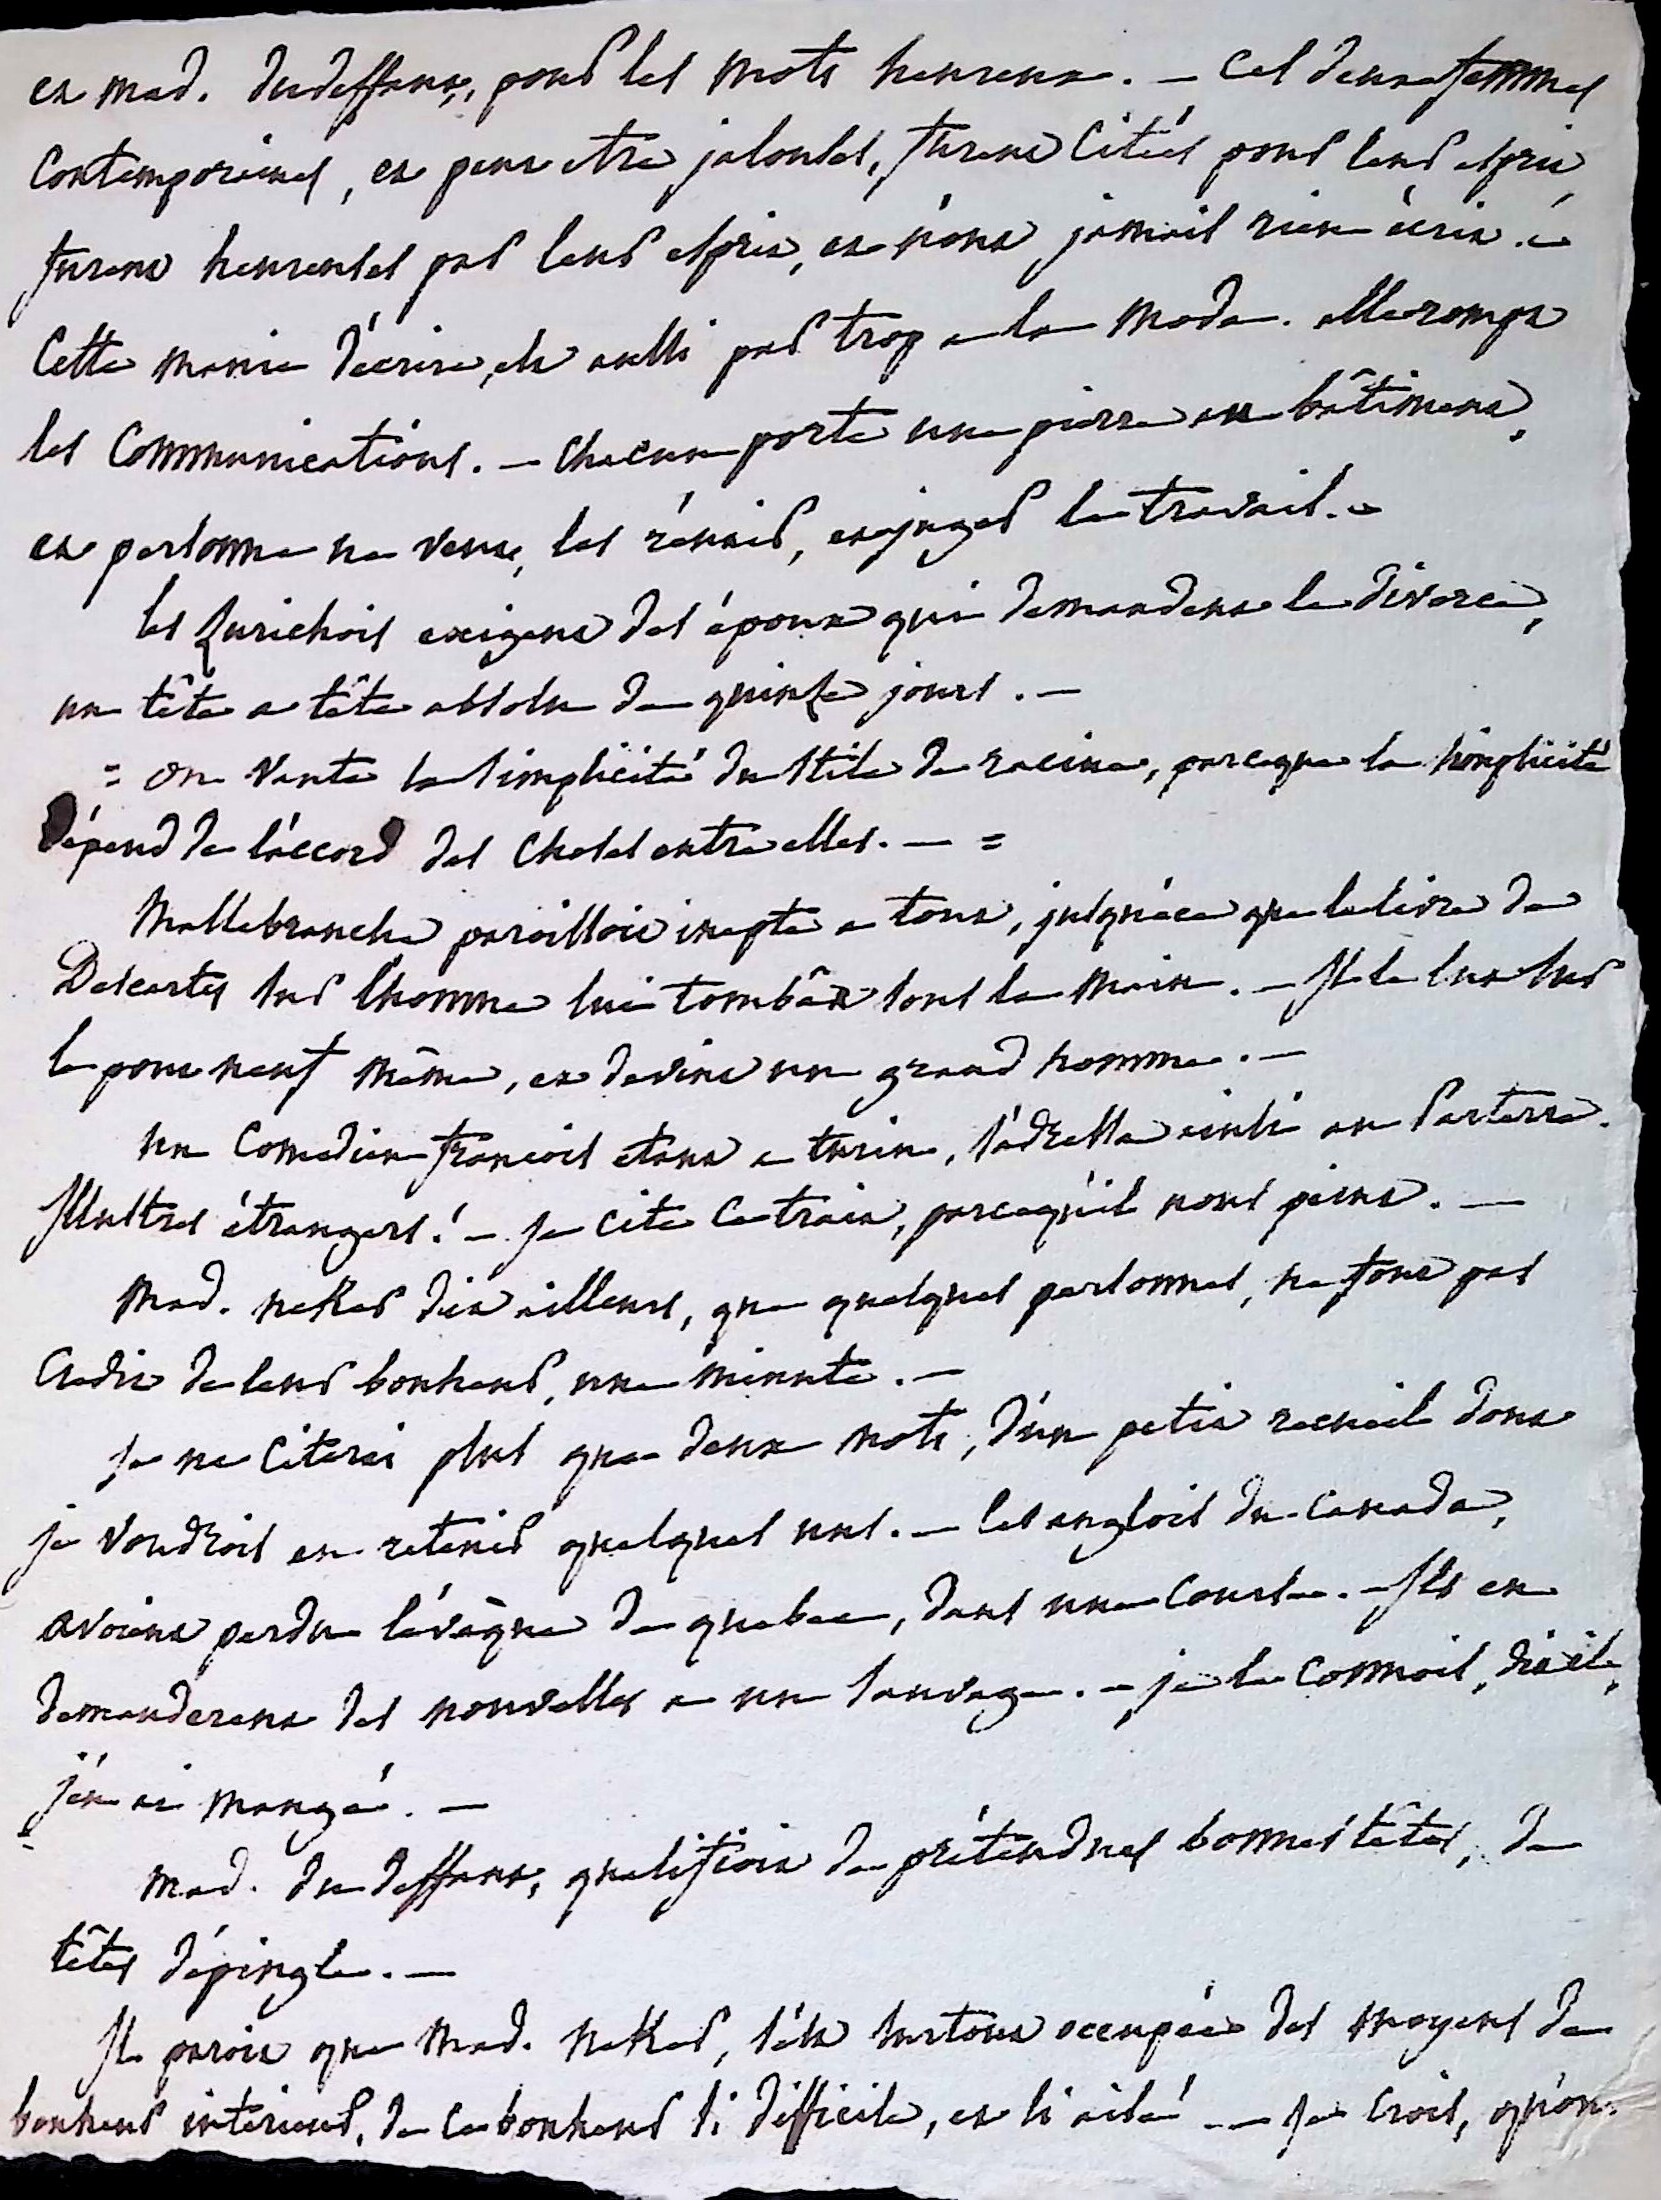 et mad. dudeffant, pour les mots heureux. — Ces deux femmes
contemporaines, et peut etre jalouses, furent citées pour leur esprit,
furent heureuses par leur esprit, et n'ont jamais rien écrit. —
Cette manie d'écrire, est aussi par trop a la mode. elle rompt
les communications. — chacun porte une pierre au bâtiment,
et personne ne veut, les réunir, et juger le travail. —
les Zurichois exigent des époux qui demandent le divorce,
un tête a tête absolu de quinze jours. —
= on vante la simplicité du stile de racine, parceque la simplicité
dépend de l'accord des choses entre elles. — =
Mallebranche paroissoit inepte a tout, jusqu'à ce que le livre de
Descartes sur l'homme lui tombât sous la main. — Il le lut sur
le pont neuf même, et devint un grand homme. —
un Comedien françois etant a turin, s'adressa ainsi au Parterre.
Illustres étrangers! — Je cite ce trait, parcequ'il nous peint. —
Mad. neker dit ailleurs, que quelques personnes, ne font pas
credit de leur bonheur, une minute. —
Je ne citerai plus que deux mots, d'un petit recueil dont
je voudrois en retenir quelques uns. — les anglois du Canada,
avoient perdu l'évêque de quebec, dans une course. — Ils en
demanderent des nouvelles a un sauvage. — je le connois, dit il,
j'en ai mangé. —
mad. du deffant, qualifioit de prétendues bonnes têtes, de
têtes d'épingle. —
Il paroit que Mad. neker, s'est surtout occupée des moyens de
bonheur intérieur, de ce bonheur si difficile, et si aisé — Je crois, qu'on